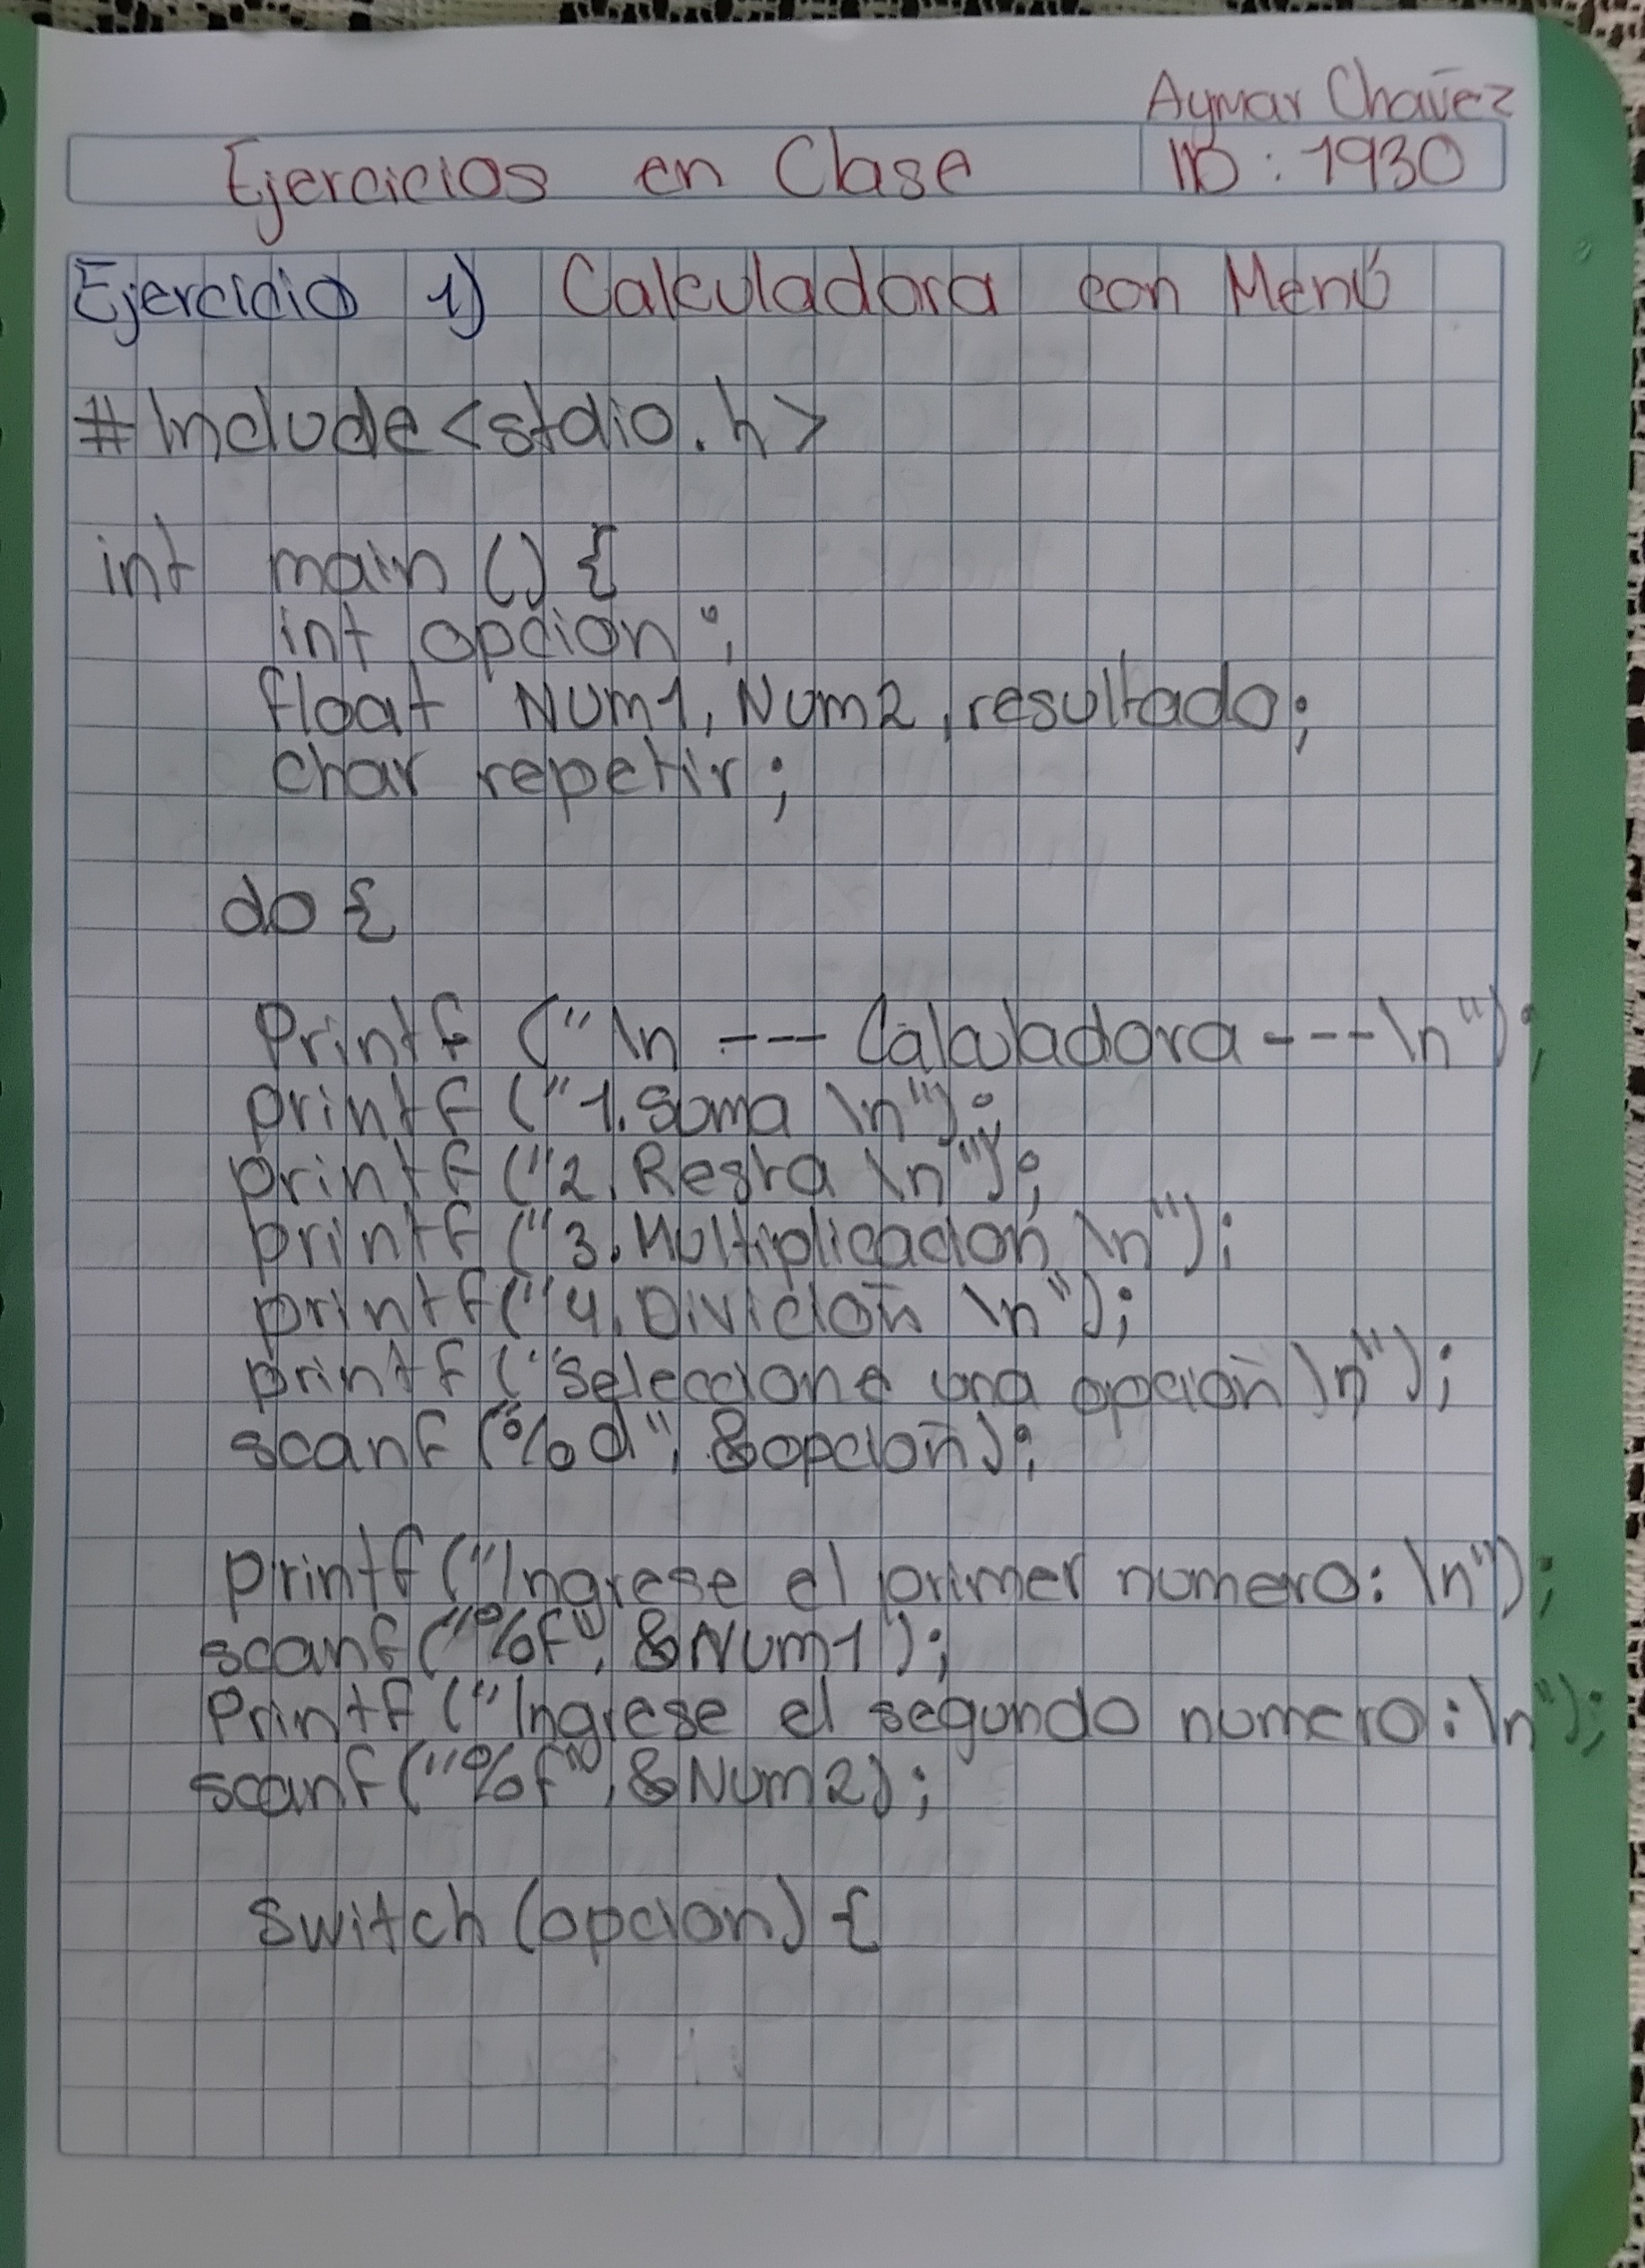 Aymar Chavéz
Ejercicios en Clase
ID: 1930
Ejercicio 1) Calculadora con Menú
#Include<stdio.h>
int main () {
int opcion;
float Num1, Num2, resultado;
char repetir;
do {
Printf ("\n --- Calculadora ---\n");
printf ("1. Suma \n");
printf ("2. Resta \n");
printf ("3. Multiplicación \n");
printf("4. División \n");
printf ("seleccione una opción \n");
scanf (%d", &opción);
printf ("Ingrese el primer numero: \n");
scanf ("%f", &Num1);
Printf ("Ingrese el segundo numero: \n");
scanf ("%f", &Num2);
switch (opcion) {